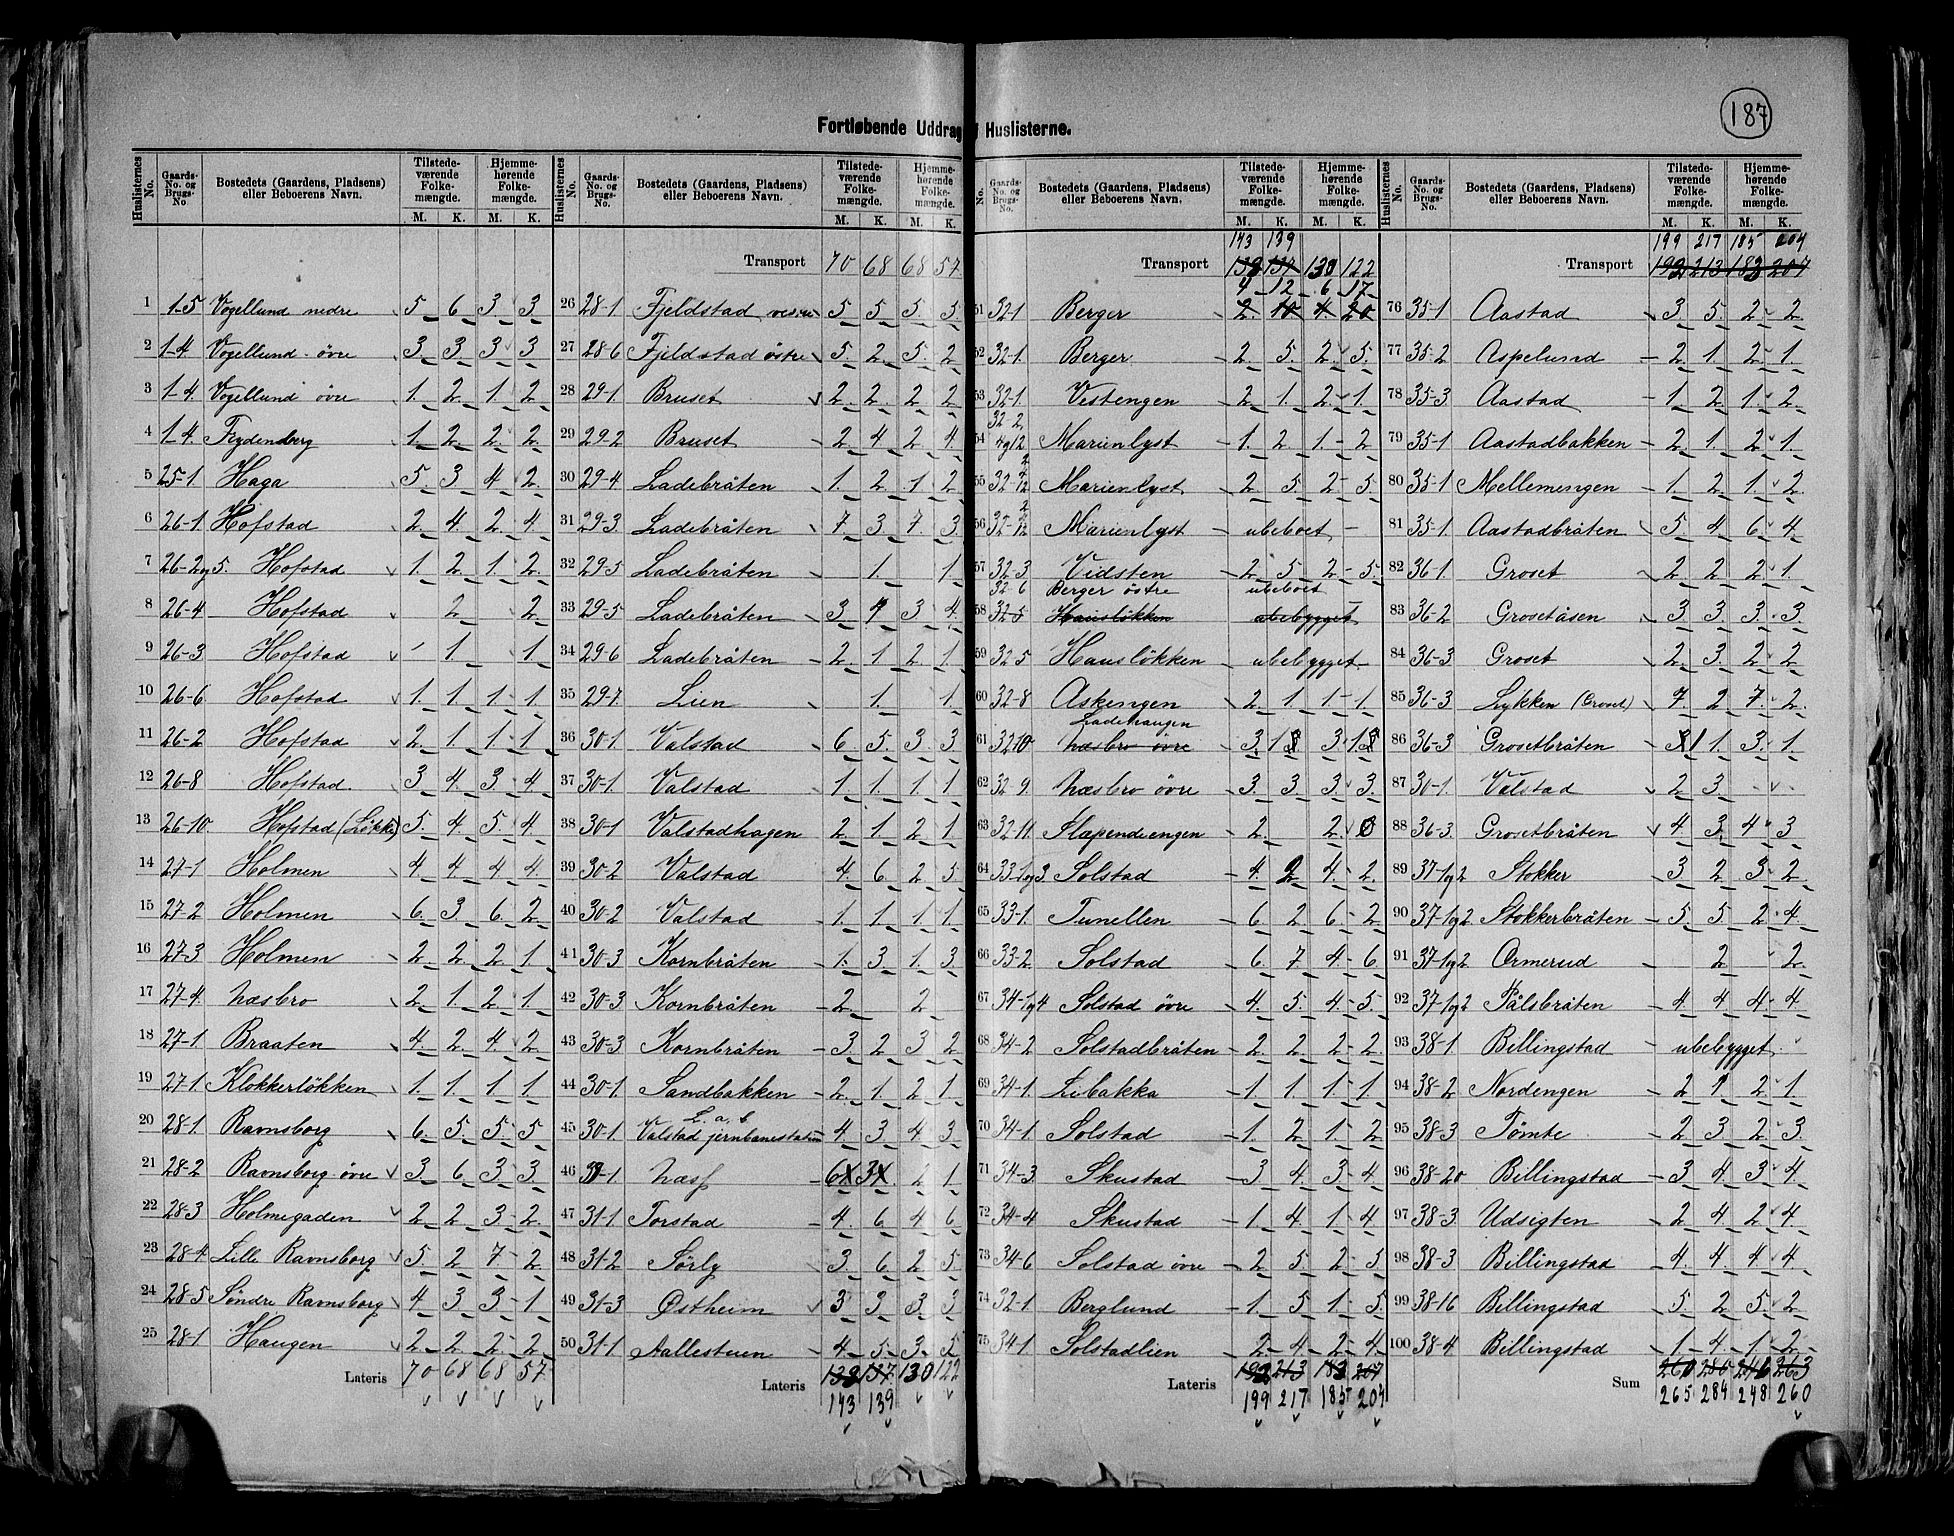 187
Fortløbende Uddrag Huslisterne.
Huslisternes No. Gaards-No. og Brugs-No. Bostedets (Gaardens, Pladsens) eller Beboerens Navn. Tilstede-værende Folke-mængde. M. K. Hjemme-hørende Folke-mængde. M. K.
1 1-5 Vogellund nedre 5 6 3 3
2 1-4 Vogellund øvre 3 3 3 3
3 1-4 Vogellund øvre 1 2 1 2
4 1-4 Frydensberg 1 2 2 2
5 25-1 Haga 5 3 4 2
6 26-1 Hofstad 2 4 2 4
7 26-2 og 5. Hofstad 1 2 1 2
8 26-4 Hofstad 2 2
9 26-3 Hofstad - 1 1
10 26-6 Hofstad 1 1 1 1
11 26-2 Hofstad 2 1 1 1
12 26-8 Hofstad 3 4 3 4
13 26-10 Hofstad (Løkke) 5 4 5 4
14 27-1 Holmen 4 4 4 4
15 27-2 Holmen 6 3 6 2
16 27-3 Holmen 2 2 2 1
17 27-4 Næsbro 2 1 2 1
18 27-1 Braaten 4 2 4 2
19 27-1 Klokkerløkken 1 1 1 1
20 28-1 Ravnsborg 6 5 5 5
21 28-2 Ravnsborg øvre 3 6 3 3
22 28-3 Holmegaden 2 2 3 2
23 28-4 Lille Ravnsborg 5 2 7 2
24 28-5 Søndre Ravnsborg 4 3 3 1
25 28-1 Haugen 2 2 2 2
Lateris 70 68 68 57
Huslisternes No. Gaards-No. og Brugs-No. Bostedets (Gaardens, Pladsens) eller Beboerens Navn. Tilstede-værende Folke-mængde. M. K. Hjemme-hørende Folke-mængde. M. K.
Transport 70 68 68 57
26 28-1 Fjeldstad vestre 5 5 5 5
27 28-6 Fjeldstad østre 5 2 5 2
28 29-1 Bruset 2 2 2 2
29 29-2 Bruset 2 4 2 4
30 29-4 Ladebråten 1 2 1 2
31 29-3 Ladebråten 7 3 7 3
32 29-5 Ladebråten 1 1
33 29-5 Ladebråten 3 4 3 4
34 29-6 Ladebråten 2 1 2 1
35 29-7 Lien 1 1
36 30-1 Valstad 6 5 3 3
37 30-1 Valstad 1 1 1 1
38 30-1 Valstadhagen 2 1 2 1
39 30-2 Valstad 4 6 2 5
40 30-2 Valstad 1 1 1 1
41 30-3 Kornbråten 1 3 1 3
42 30-3 Kornbråten 2 2
43 30-3 Kornbråten 3 2 3 2
44 30-1 Sandbakken 2 1 2 1
L. a. b
45 30-1 Valstad jernbanestation 4 3 4 3
46 Næss 6X 3X 2 1
47 31-1 Torstad 4 6 4 6
48 31-2 Sørly 3 6 2 5
49 31-3 Østheim 3 3 3 3
50 31-1 Aallestuen 4 5 3 5
Lateris 138 137 130 122
143 139
No. Gaards-No. og Brugs-No. Bostedets (Gaardens, Pladsens) eller Beboerens Navn. Tilstede-værende Folke-mængde. M. K. Hjemme-hørende Folke-mængde. M. K.
143 139
Transport 138 137 130 122
4 12 6 17
51 32-1 Berger 2 10 4 20
52 32-1 Berger 2 5 2 5
53 32-1 Vestengen 2 1 2 1
32-2
54 4 og 12 Marienlyst 1 2 1 2
55 32-12 Marienlyst 2 5 2 5
56 32-12 Marienlyst - ubeboet -
57 32-3 Vidsten 2 5 2 5
32-6 Berger østre ubeboet
58 32-5 Hausløkken ubebygget
59 32-5 Hausløkken - ubebygget -
60 32-8 Askengen 2 1 1 1
Ladehaugen
61 32-10 Næsbro øvre 3 1 3 1
62 32-9 Næsbro øvre 3 3 3 3
63 32-11 Slependengen 2 2 0
64 33-1 og 3 Solstad 4 2 4 2
65 33-1 Tunellen 6 2 6 2
66 33-2 Solstad 6 7 4 6
67 34-1 og 4 Solstad øvre 4 5 4 5
68 34-2 Solstadbråten 2 2 2 2
69 34-1 Libakka 1 1 1 1
70 34-1 Solstad 1 2 1 2
71 34-3 Skustad 3 4 3 4
72 34-4 Skustad 1 4 1 4
73 34-6 Solstad øvre 2 5 2 5
74 32-1 Berglund 1 5 1 5
75 34-1 Solstadlien 2 4 2 4
Lateris 192 213 183 207
199 217 185 204
Huslisternes No. Gaards-No. og Brugs-No. Bostedets (Gaardens, Pladsens) eller Beboerens Navn. Tilstede-værende Folke-mængde. M. K. Hjemme-hørende Folke-mængde. M. K.
199 217 185 204
Transport 192 213 183 207
76 35-1 Aastad 3 5 2 2
77 35-2 Aspelund 2 1 2 1
78 35-3 Aastad 1 2 1 2
79 35-1 Aastadbakken 2 1 2 1
80 35-1 Mellemengen 1 2 1 2
81 35-1 Aastadbråten 5 4 6 4
82 36-1 Groset 2 2 2 1
83 36-2 Grosetåsen 3 3 3 3
84 36-3 Groset 2 3 2 2
85 36-3 Lykken (Groset) 7 2 7 2
86 36-3 Grosetbråten 1 1 3 1
87 30-1 Valstad 2 3
88 36-3 Grosetbråten 4 3 4 3
89 37-1 og 2 Stokker 3 2 3 2
90 37-1 og 2 Stokkerbråten 5 5 2 4
91 37-1 og 2 Ormerud 2 2
92 37-1 og 2 Pålsbråten 4 4 4 4
93 38-1 Billingstad ubebygget
94 38-2 Nordengen 2 1 2 1
95 38-3 Tømte 2 3 2 3
96 38-20 Billingstad 3 4 3 4
97 38-3 Udsigten 2 4 2 4
98 38-3 Billingstad 4 4 4 4
99 38-16 Billingstad 5 2 5 2
100 38-4 Billingstad 1 4 1 2
Sum 260 280 246 263
265 284 248 260